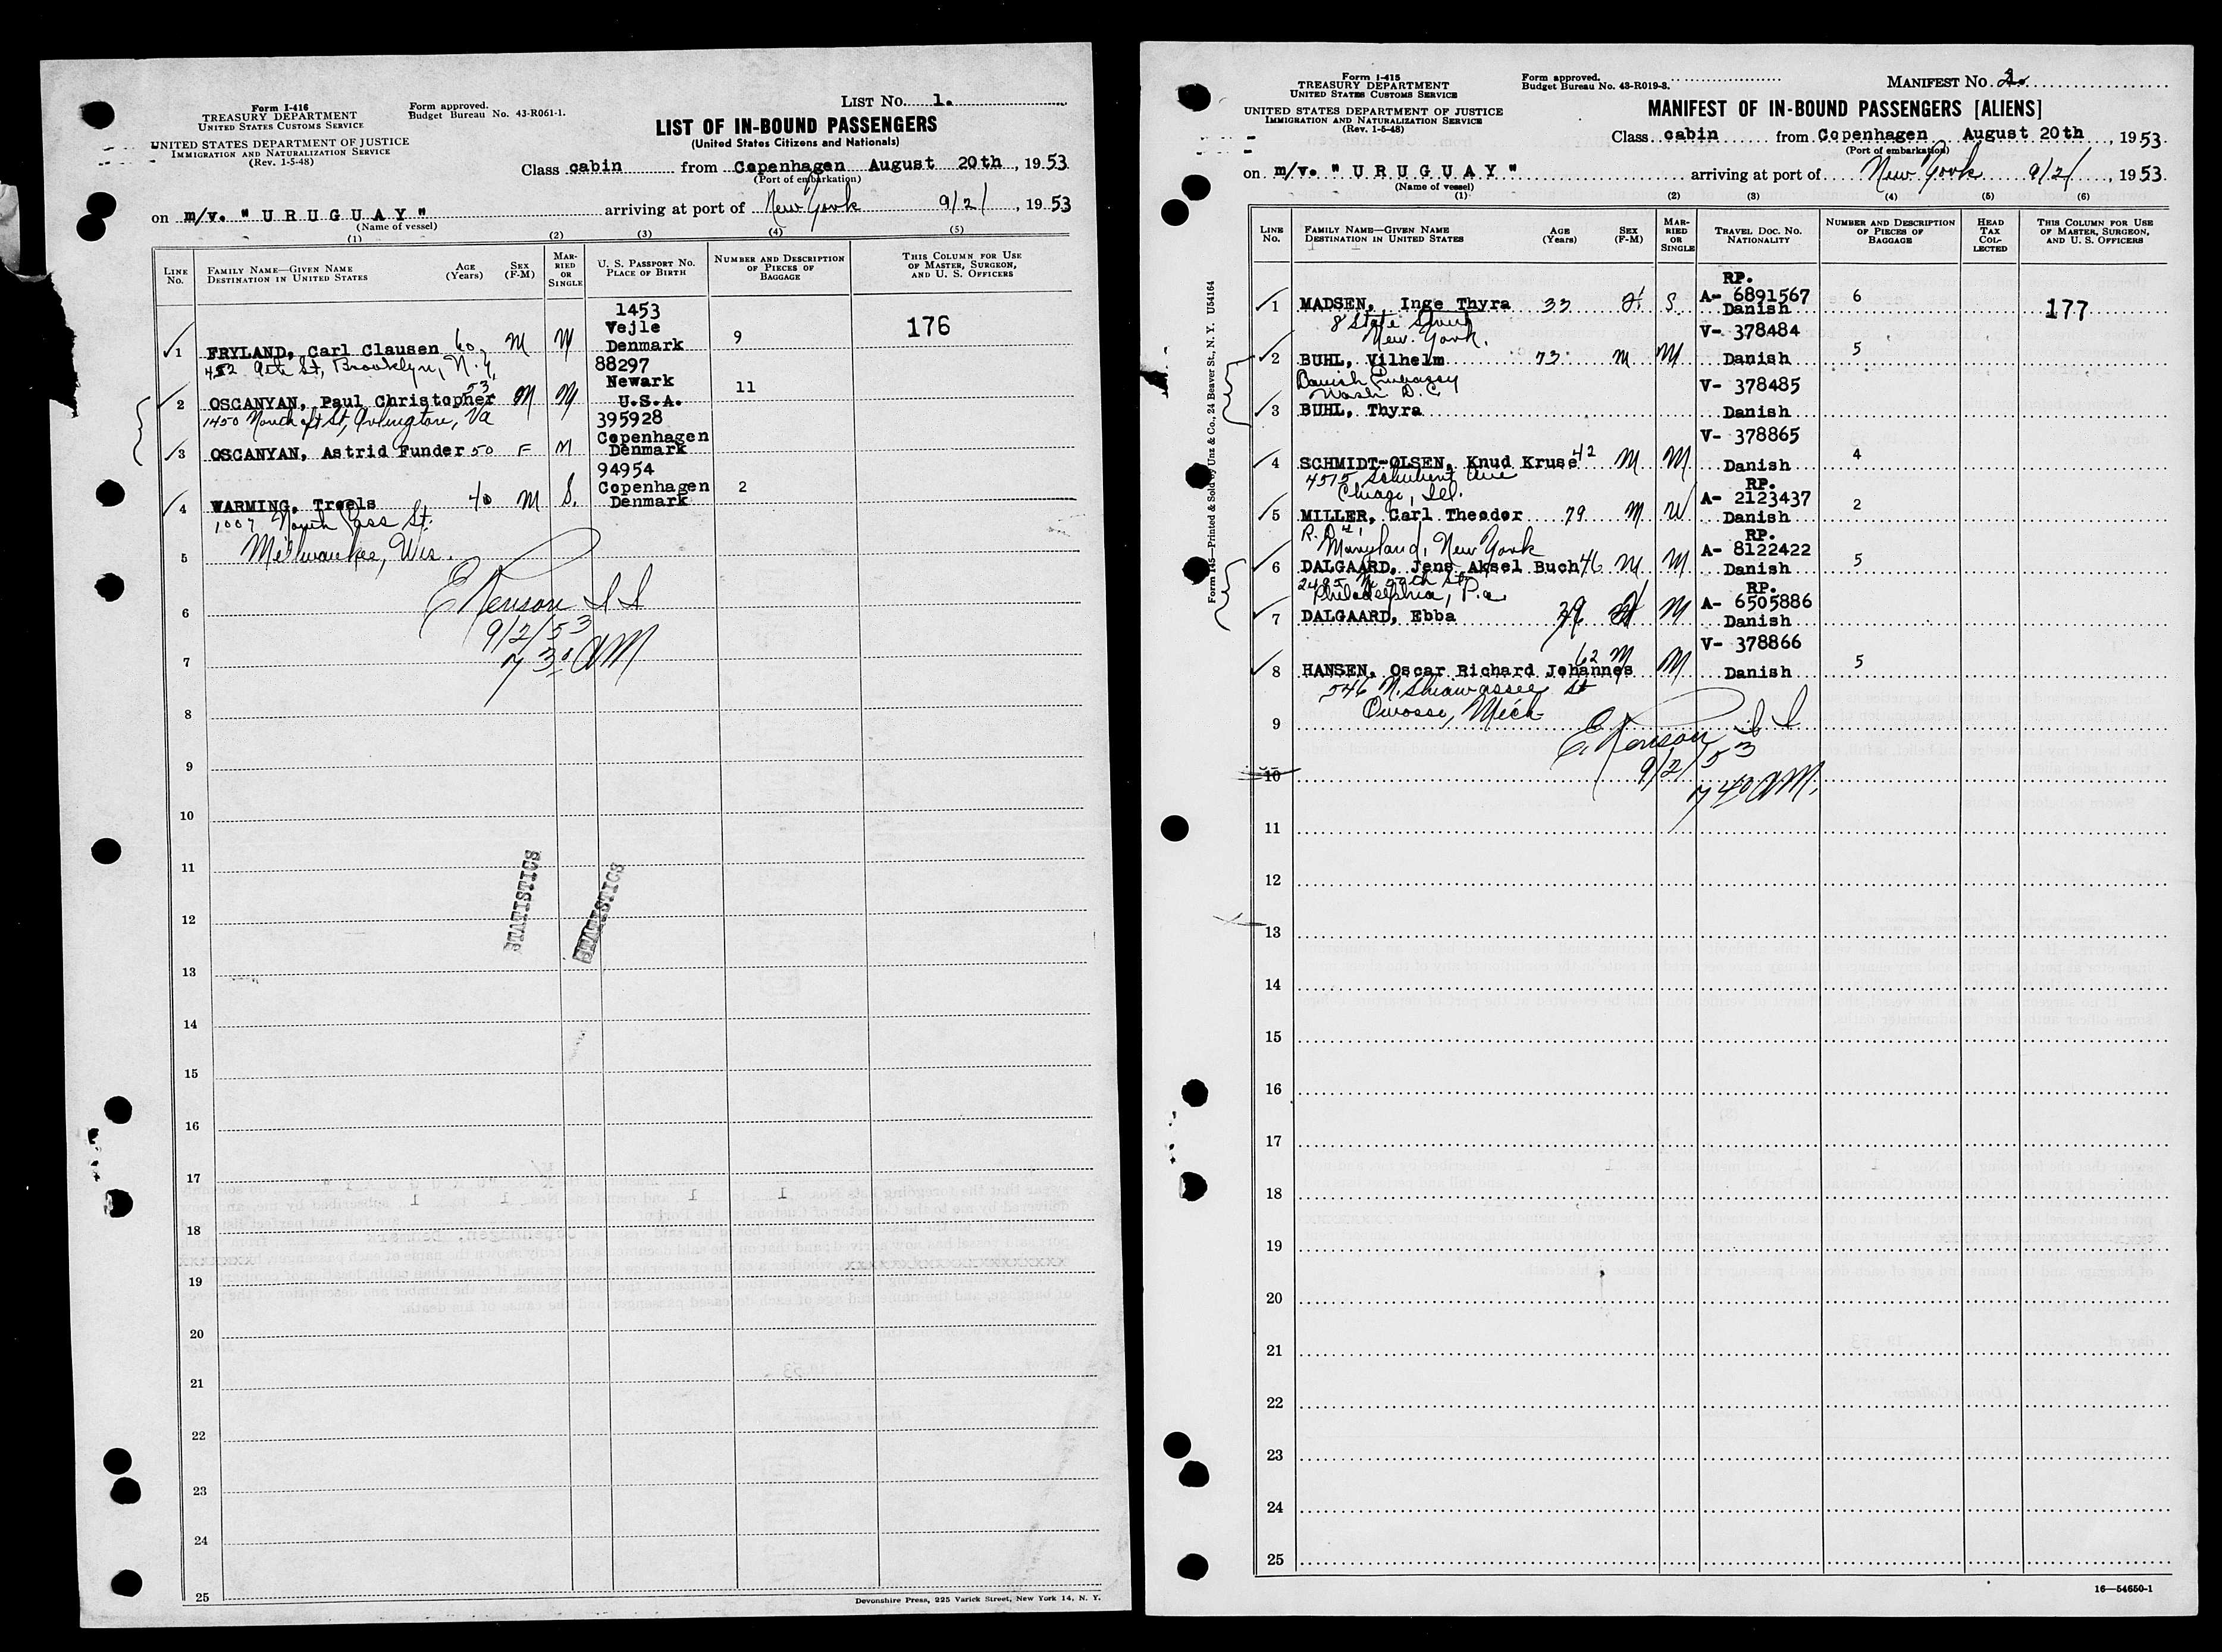 Form I-416
TREASURY DEPARTMENT
UNITED STATES CUSTOMS SERVICE
UNITED STATES DEPARTMENT OF JUSTICE
IMMIGRATION AND NATURALIZATION SERVICE
(Rev. 1-5-48)
Form approved.
Budget Bureau No. 43-R061-1.
LIST No. 1.
LIST OF IN-BOUND PASSENGERS
(United States Citizens and Nationals)
Class cabin from Copenhagen August 20th, 1953
(Port of embarkation)
on m/v. "URUGUAY" arriving at port of New York 9/2/, 1953
(Name of vessel)
(1) (2) (3) (4) (5)
LINE No.
FAMILY NAME—GIVEN NAME
DESTINATION IN UNITED STATES
AGE (Years)
SEX (F-M)
MARRIED OR SINGLE
U. S. PASSPORT NO.
PLACE OF BIRTH
NUMBER AND DESCRIPTION OF PIECES OF BAGGAGE
THIS COLUMN FOR USE OF MASTER, SURGEON, AND U. S. OFFICERS
1453
Vejle
1 FRYLAND, Carl Clausen 60 M M Denmark 9 176
452 9th St, Brooklyn, N.Y.
88297
Newark
2 OSCANYAN, Paul Christopher 53 M M U.S.A. 11
1450 North St, Arlington, Va
395928
Copenhagen
3 OSCANYAN, Astrid Funder 50 F M Denmark
94954
Copenhagen
4 WARMING, Troels 40 M S. Denmark 2
1007 North Cass St.
5 Milwaukee, Wis.
6 E Renson I I
9/2/53
7 7 30 AM
8
9
10
11
STATISTICS
STATISTICS
12
13
14
15
16
17
18
19
20
21
22
23
24
25
Devonshire Press, 225 Varick Street, New York 14, N. Y.
Form I-415
TREASURY DEPARTMENT
UNITED STATES CUSTOMS SERVICE
UNITED STATES DEPARTMENT OF JUSTICE
IMMIGRATION AND NATURALIZATION SERVICE
(Rev. 1-5-48)
Form approved.
Budget Bureau No. 43-R019-3.
MANIFEST No.
MANIFEST OF IN-BOUND PASSENGERS [ALIENS]
Class cabin from Copenhagen August 20th, 1953
(Port of embarkation)
on m/v. "URUGUAY" arriving at port of New York 9/2/, 1953.
(Name of vessel)
(1) (2) (3) (4) (5) (6)
LINE No.
FAMILY NAME—GIVEN NAME
DESTINATION IN UNITED STATES
AGE (Years)
SEX (F-M)
MARRIED OR SINGLE
TRAVEL DOC. NO.
NATIONALITY
NUMBER AND DESCRIPTION OF PIECES OF BAGGAGE
HEAD TAX COLLECTED
THIS COLUMN FOR USE OF MASTER, SURGEON, AND U. S. OFFICERS
Form I45—Printed & Sold by Unz & Co., 24 Beaver St., N. Y. U54164
RP.
A- 6891567
1 MADSEN, Inge Thyra 33 F S Danish 6 177
8 State Street
New York.
V- 378484
2 BUHL, Vilhelm 73 M M Danish 5
Danish Embassy
Wash D.C.
V- 378485
3 BUHL, Thyra Danish
V- 378865
4 SCHMIDT-OLSEN, Knud Kruse 42 M M Danish 4
4515 Schubert Ave
Chicago, Ill.
RP.
A- 2123437
5 MILLER, Carl Theodor 79 M W Danish 2
Maryland, New York
RP.
A- 8122422
6 DALGAARD, Jens Aksel Buch 46 M M Danish 5
Philadelphia, Pa
RP.
A- 6505886
7 DALGAARD, Ebba 39 M Danish
V- 378866
8 HANSEN, Oscar Richard Johannes 62 M M Danish 5
546 N. Shiawassee St
9 Owosso, Mich
E. Renson I I
10 9/2/53
7 40 AM.
11
12
13
14
15
16
17
18
19
20
21
22
23
24
25
16—54650-1